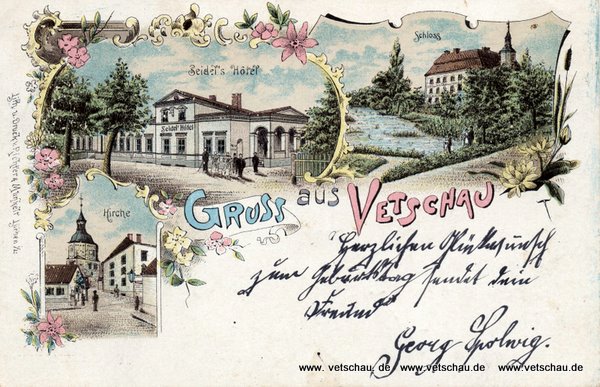 Schloss
Seidel's Hôtel
Seidel's Hôtel
Kirche
GRUSS aus VETSCHAU
Herzlichen Glückwunsch
zum Geburtstag sendet dein
Freund
Georg
www. vetschau. de www.vetschau.de www.vetschau.de